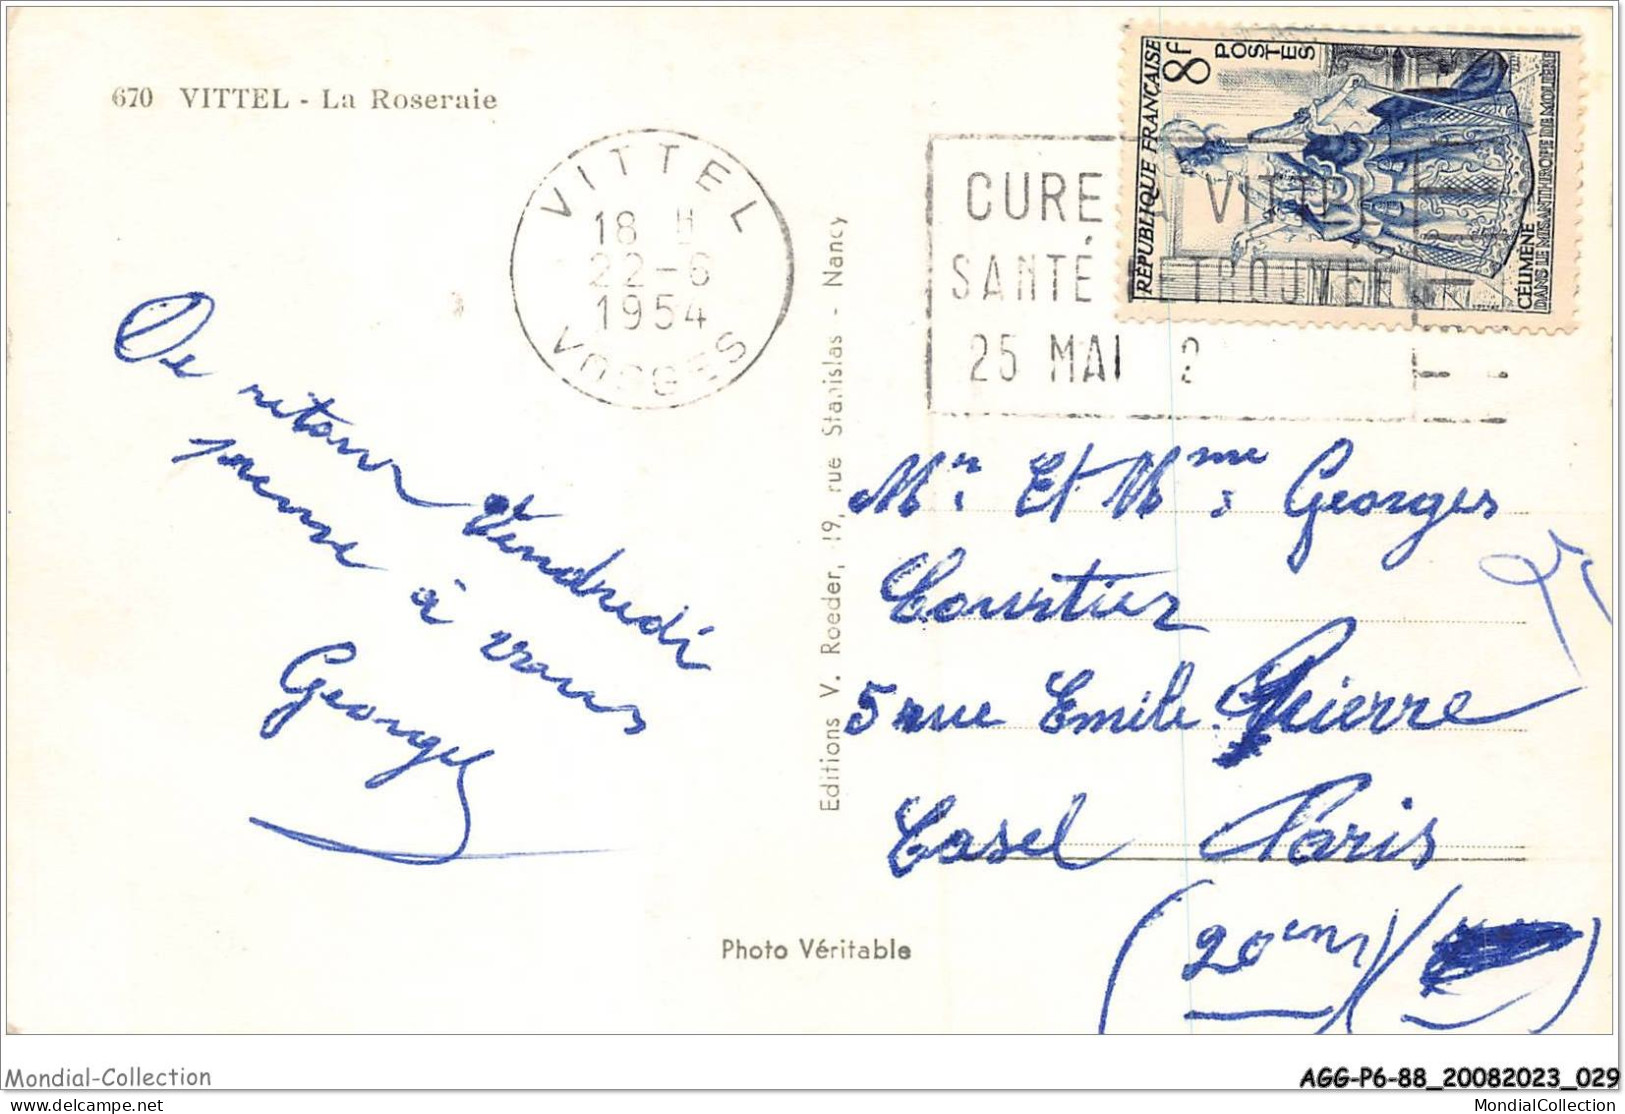 670 VITTEL - La Roseraie
VITTEL
18 H
22-6
1954
VOSGES
CURE A VITTEL
SANTÉ RETROUVÉE
25 MAI 2
RÉPUBLIQUE FRANÇAISE
8f
POSTES
CÉLIMÈNE
DANS LE MISANTHROPE DE MOLIÈRE
De retour Vendredi
pense à vous
Georges
Editions V. Roeder, 19, rue Stanislas - Nancy
Photo Véritable
Mr. Et Mme : Georges
Courtier
5 rue Emile Pierre
Casel Paris
(20em) (
Mondial-Collection
AGG-P6-88_20082023_029
www.delcampe.net
MondialCollection